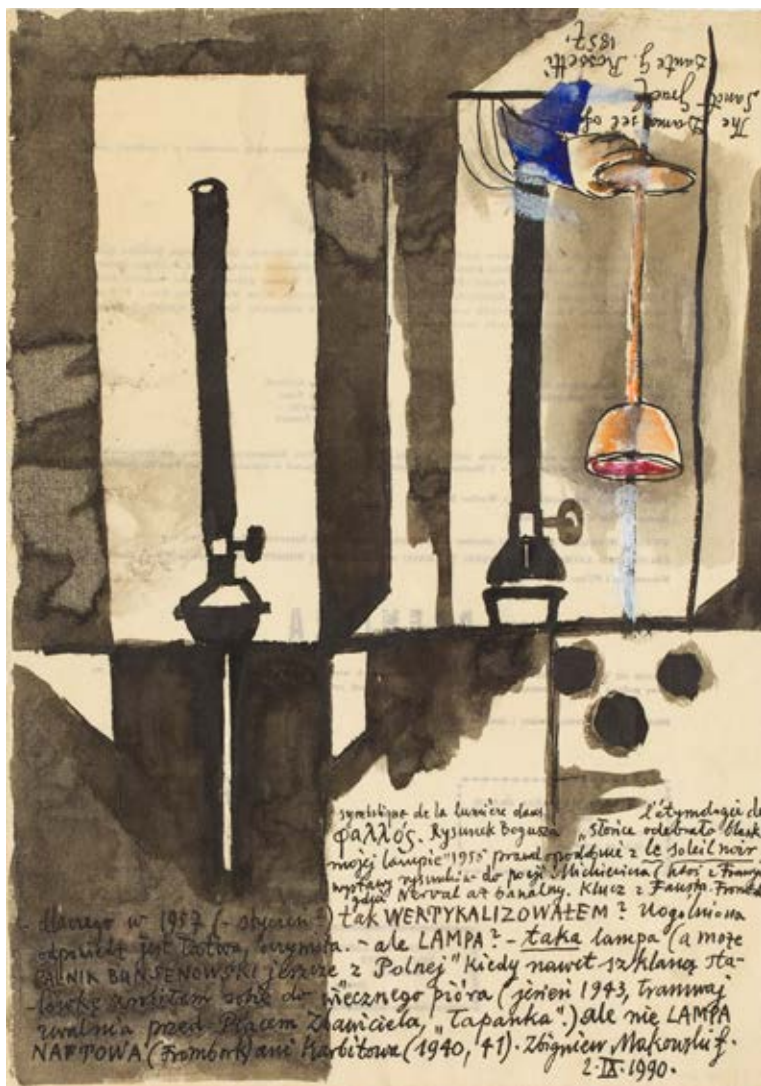 The Damosel of
„Sanct Grael"
Dante G. Rossetti
1857.
symbolique de la lumière dans l'étymologie de
φαλλός. Rysunek Bogusza „Słońce odebrało blask
mojej lampie" 1955 prawdopodobnie z le soleil noir
wystawy rysunków do poezji Mickiewicza (ktoś z
gdyż Nerval aż banalny. Klucz z Fausta.
dlaczego w 1957 (- styczeń?) tak WERTYKALIZOWAŁEM? Uogólniona
odpowiedź jest łatwa, - ale LAMPA? - taka lampa (a może
PALNIK BUNSENOWSKI jeszcze z „Polnej" kiedy nawet szklaną sta-
lówkę zrobiłem sobie do wiecznego pióra (jesień 1943, tramwaj
zwalnia przed Placem Zbawiciela, „Łapanka") ale nie LAMPA
NAFTOWA (Frombork) ani Karbitowa (1940, 41). Zbigniew Makowski f.
2.IX.1990.